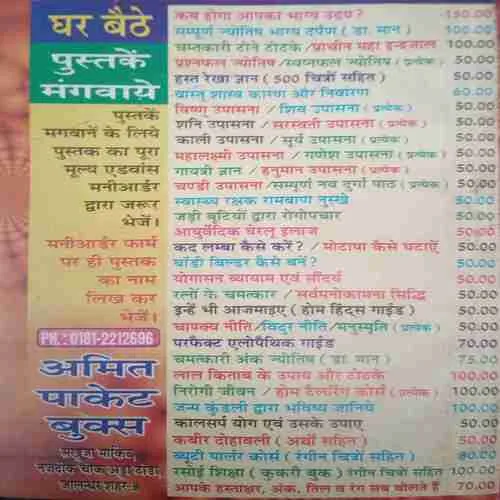 घर बैठे
पुस्तकें
मंगवायें
पुस्तकें
मगबानें के लिये
पुस्तक का पूरा
मूल्य एडवांस
मनीआर्डर
द्वारा जरूर
भेजें।
मनीआर्डर फार्म
पर ही पुस्तक
का नाम
लिख कर
भेजें।
PH.: 0181-2212696
अमित
पाकेट
बुक्स
नजदीक चौक अड्डा टांडा,
जालन्धर शहर-8
कब होगा आपका भाग्य उदय? 150.00
सम्पूर्ण ज्योतिष भाग्य दर्पण ( डा. मान ) 100.00
चमत्कारी टोने टोटके/प्राचीन महा इन्द्रजाल 100.00
प्रश्नफल ज्योतिष/स्वप्नफल ज्योतिष (प्रत्येक) 50.00
हस्त रेखा ज्ञान ( 500 चित्रों सहित ) 50.00
वास्तु शास्त्र कारण और निवारण 60.00
विष्णु उपासना / शिव उपासना ( प्रत्येक ) 50.00
शनि उपासना / सरस्वती उपासना ( प्रत्येक ) 50.00
काली उपासना / सूर्य उपासना ( प्रत्येक ) 50.00
महालक्ष्मी उपासना / गणेश उपासना ( प्रत्येक ) 50.00
गायत्री ज्ञान / हनुमान उपासना ( प्रत्येक ) 50.00
चण्डी उपासना/सम्पूर्ण नव दुर्गा पाठ ( प्रत्येक ) 50.00
स्वास्थ्य रक्षक रामबाण नुस्खे 50.00
जड़ी बूटियों द्वारा रोगोपचार 50.00
आयुर्वेदिक घरेलू इलाज 50.00
कद लम्बा कैसे करें? / मोटापा कैसे घटाएँ 50.00
बॉडी बिल्डर कैसे बनें? 50.00
योगासन व्यायाम एवं सौंदर्य 50.00
रत्नों के चमत्कार / सर्वमनोकामना सिद्धि 50.00
इन्हें भी आजमाइए ( होम हिंट्स गाईड ) 50.00
चाणक्य नीति/विदुर नीति/मनुस्मृति ( प्रत्येक ) 50.00
परफैक्ट एलोपैथिक गाईड 70.00
चमत्कारी अंक ज्योतिष ( डा. मान ) 75.00
लाल किताब के उपाय और टोटके 100.00
निरोगी जीवन / होम टैलरिंग कोर्स ( प्रत्येक ) 100.00
जन्म कुंडली द्वारा भविष्य जानिये 100.00
कालसर्प योग एवं उसके उपाए 50.00
कबीर दोहावली ( अर्थों सहित ) 50.00
ब्यूटी पार्लर कोर्स ( रंगीन चित्रों सहित ) 80.00
रसोई शिक्षा ( कुकरी बुक ) रंगीन चित्रों सहित 100.00
आपके हस्ताक्षर, अंक, तिल व रंग सब बोलते हैं 70.00